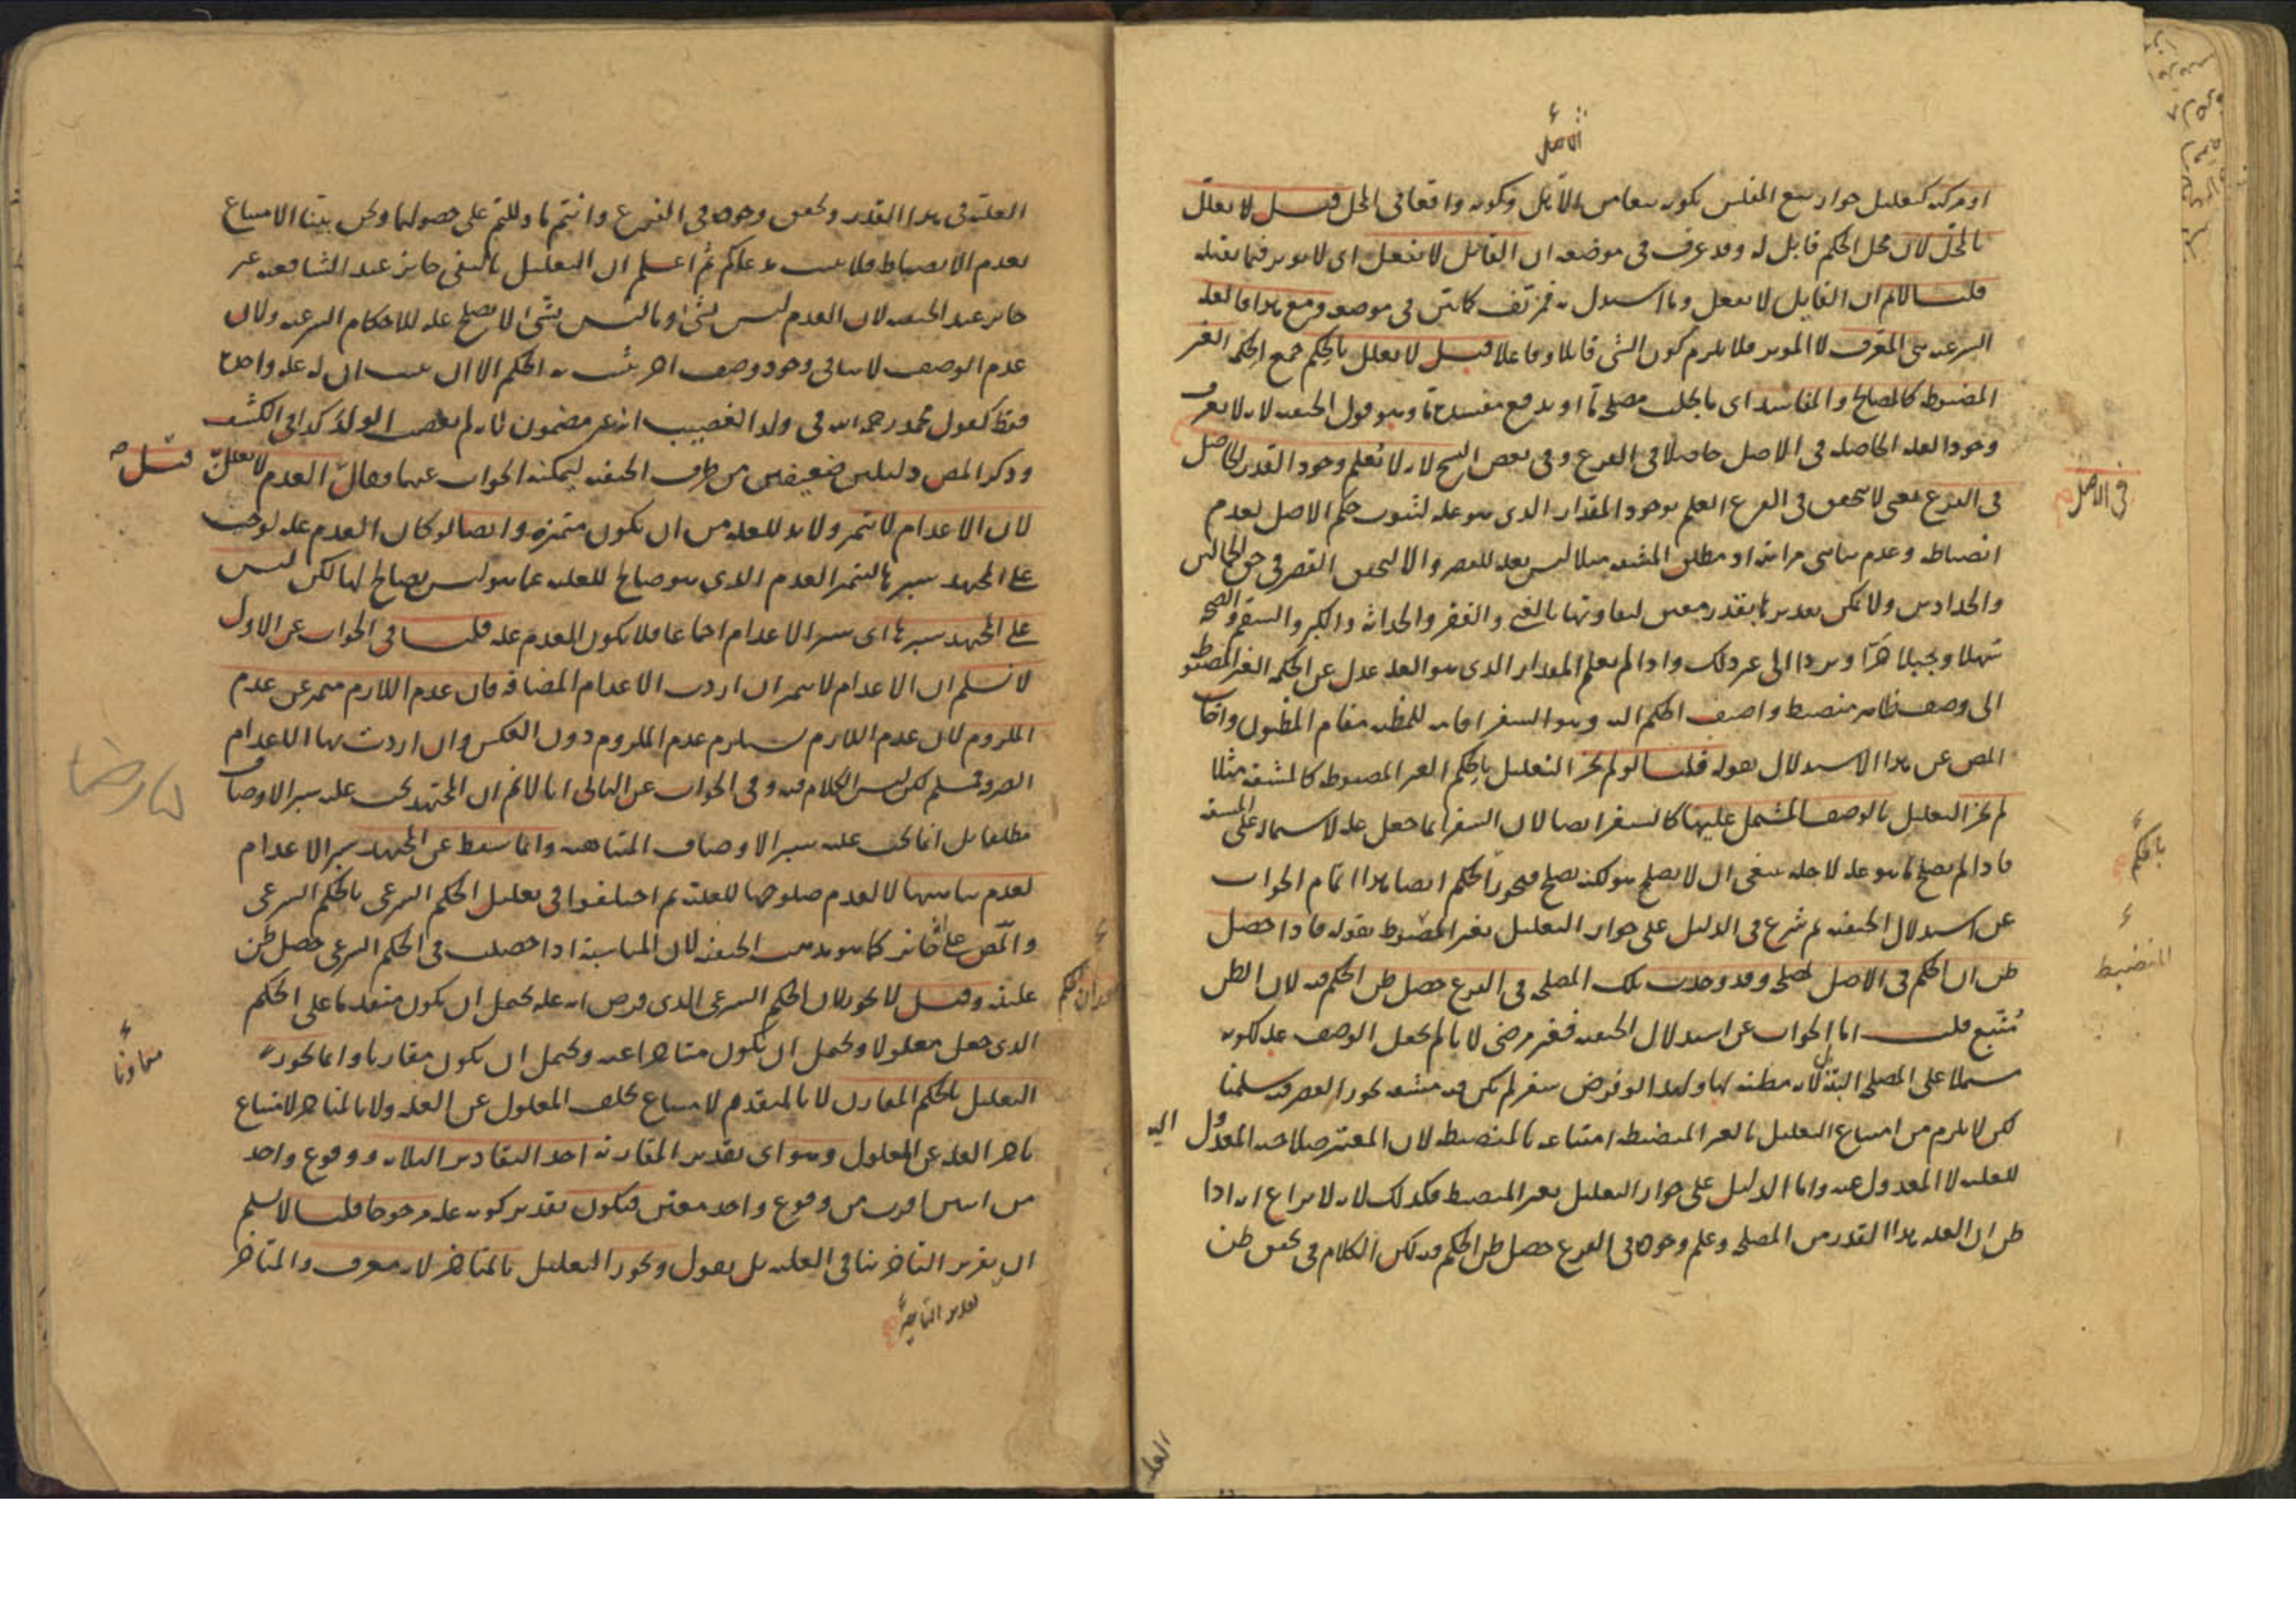 الاصل
او مركبه كتعليل جواز بيع المفلس بكونه بيعا من الاهل وكونه واقعا فى المحل قيل لا يعلل
بالمحل لان محل الحكم قابل له وقد عرف فى موضعه ان القابل لا يفعل اى لا يوثر فيما يقبله
قلنا لانم ان القابل لا يفعل وما استدل به فمزيف كما بين فى موضعه ومع هذا فالعله
الشرعيه هى المعرف لا الموثر فلا يلزم كون الشى قابلا وفاعلا قيل لا يعلل بالحكم جمع الحكمه الغير
المضبوطه كالمصالح والمفاسد اى ما يجلب مصلحة ما او يدفع مفسدة ما وهو قول الحنفيه لانه لا يعرف
وجود العله الحاصله فى الاصل حاصلا فى الفرع وفى بعض النسخ لانه لا تعلم وجود القدر الحاصل
فى الاصل
فى الفرع يعنى لا يتحقق فى الفرع العلم بوجود المقدار الذى هو عله لثبوت حكم الاصل لعدم
انضباطه وعدم تناهى مراتبه او مطلق المشقه مثلا ليس بعله للقصر والا لتحقق القصر فى حق الحمالين
والحدادين ولا يمكن تقديرها بقدر معين لتفاوتها بالغنى والفقر والحداثه والكبر والسقم والصحه
سهلا وجبلا حرا وبردا الى غير ذلك واذا لم يعلم المقدار الذى هو العله عدل عن الحكمه الغير المضبوطه
الى وصف ظاهر منضبط واضيف الحكم اليه وهو السفر اقامه للمظنه مقام المظنون واجاب
المص عن هذا الاستدلال بقوله قلنا لو لم يجز التعليل بالحكم الغير المضبوطه كالمشقه مثلا
لم يجز التعليل بالوصف المشتمل عليها كالسفر ايضا لان السفر انما جعل عله لاشتماله على المشقه
بالحكمة
فاذا لم يصلح ما هو عله لاجله ينبغى ان لا يصلح هو لكنه يصلح فيجوز الحكم ايضا هذا تمام الجواب
عن استدلال الحنفيه ثم شرع فى الدليل على جواز التعليل بغير المضبوط بقوله فاذا حصل
المنضبط
ظن ان الحكم فى الاصل لمصلحه وقد وجدت تلك المصلحه فى الفرع حصل ظن الحكم فيه لان الظن
متبع قلت اما الجواب عن استدلال الحنفيه فغير مرضى لانا لم نجعل الوصف عله لكونه
مشتملا على المصلحه البته بل لانه مظنه لها ولهذا لو فرض سفر لم يكن فيه مشقه يجوز القصر فيه سلمنا
لكن لا يلزم من امتناع التعليل بالغير المنضبطه امتناعه بالمنضبطه لان المعتبر صلاحيه المعدول اليه
للعليه لا المعدول عنه واما الدليل على جواز التعليل بغير المنضبط فكذلك لانه لا نزاع انه اذا
ظن ان العله هذا القدر من المصلحه وعلم وجوده فى الفرع حصل ظن الحكم فيه لكن الكلام فى تحقق ظن
العلـ
العليه فى هذا القدر وتحقق وجوده فى الفرع وانتم ما دللتم على حصولهما ونحن بينا الامتناع
بعدم الانضباط فلا يثبت مدعاكم ثم اعلم ان التعليل بالنفى جايز عند الشافعيه غير
جايز عند الحنفيه لان العدم ليس بشى وما ليس بشى لا يصلح عله للاحكام الشرعيه ولان
عدم الوصف لا ينافى وجود وصف اخر يثبت به الحكم الا ان يثبت ان له عله واحدة
فقط كقول محمد رحمه الله فى ولد الغصيب انه غير مضمون لانه لم يغصب الولد كذا فى الكشف
وذكر المص دليلين ضعيفين من طرف الحنفيه ليمكنه الجواب عنهما وقال العدم لا يعلل قيل
لان الاعدام لا تتميز ولا بد للعله من ان تكون متميزه وايضا لو كان العدم عله لوجب
على المجتهد سبرها لتميز العدم الذى هو صالح للعليه عما هو ليس بصالح لها لكن ليس
على المجتهد سبرها اى سبر الاعدام اجماعا فلا يكون العدم عله قلنا فى الجواب عن الاول
لا نسلم ان الاعدام لا تتميز ان اردت الاعدام المضافه فان عدم اللازم متميز عن عدم
الملزوم لان عدم اللازم يستلزم عدم الملزوم دون العكس وان اردت بها الاعدام
الصرفه فمسلم لكن ليس الكلام فيه وفى الجواب عن الثانى انا لانم ان المجتهد يجب عليه سبر الاوصاف
مطلقا بل انما يجب عليه سبر الاوصاف المتناهيه وانما سقط عن المجتهد سبر الاعدام
لعدم تناهيها لا لعدم صلوحها للعليه ثم اختلفوا فى تعليل الحكم الشرعى بالحكم الشرعى
والمص على انه جايز كما هو مذهب الحنفيه لان المناسبه اذا حصلت فى الحكم الشرعى حصل ظن
عليته وقيل لا يجوز لان الحكم الشرعى الذى فرض انه عله يحتمل ان يكون متقدما على الحكم
الذى جعل معلولا ويحتمل ان يكون متاخرا عنه ويحتمل ان يكون مقارنا وانما يجوز
التعليل بالحكم المقارن لا بالمتقدم لامتناع تخلف المعلول عن العله ولا بالمتاخر لامتناع
تاخر العله عن المعلول وهو اى تقدير المقارنه احد التقادير الثلاثه ووقوع واحد
من اثنين اقرب من وقوع واحد معين فيكون تقدير كونه عله مرجوحا قلنا لا نسلم
ان تقدير التاخر ينافى العليه بل يقول ويجوز التعليل بالمتاخر لانه معرف والمتاخر